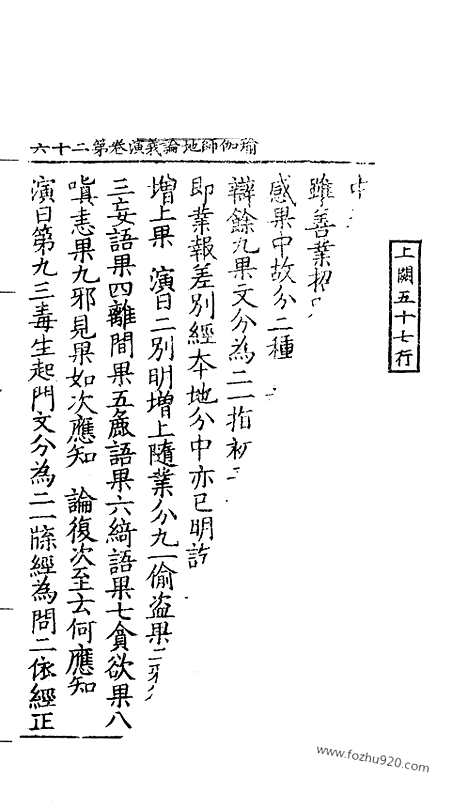 上闕五十七行
瑜伽師地論義演卷第二十六
中
雖善業招
感果中故分二種
辯餘九果文分為二一指初
即業報差別經本地分中亦已明訖
增上果　演曰二別明增上隨業分九一偷盜果二邪
三妄語果四離間果五麁語果六綺語果七貪欲果八
嗔恚果九邪見果如次應知　論復次至云何應知
演曰第九三毒生起門文分為二一牒經為問二依經正
www.fozhu920.com